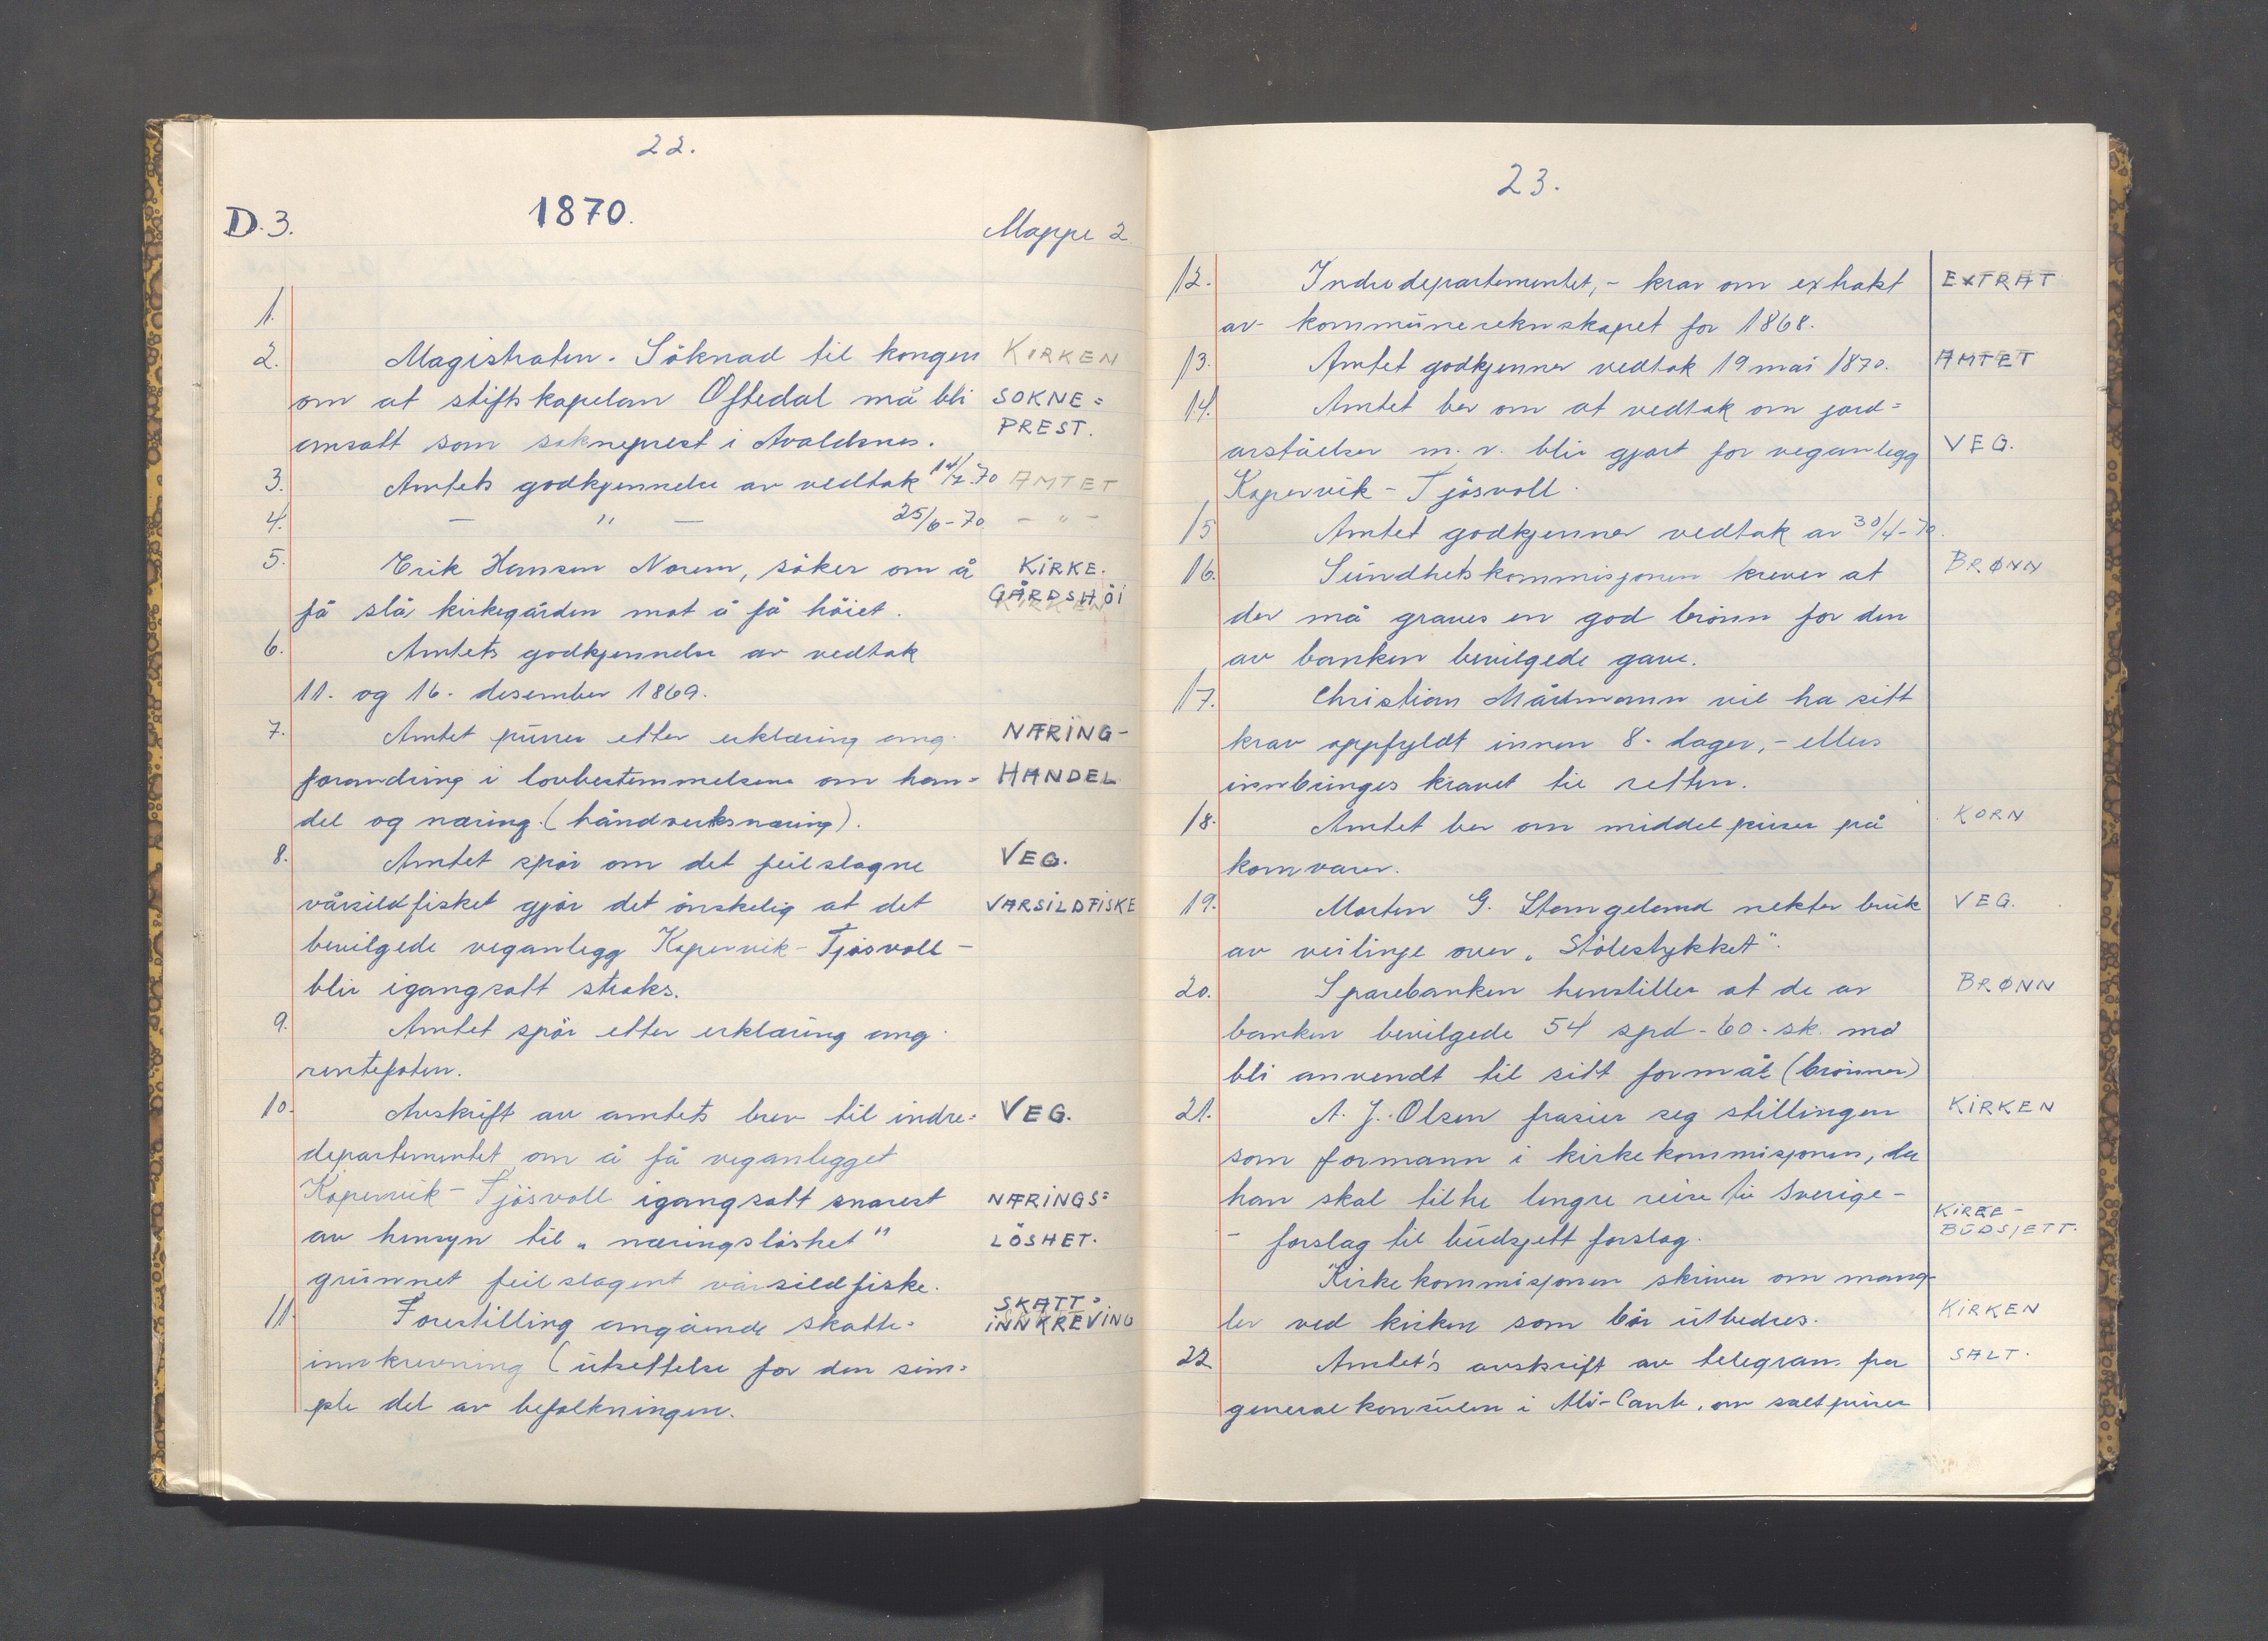 22.
D. 3. 1870. Mappe 2
1.
2. Magistraten. Söknad til kongen KIRKEN
om at stiftskapelan Oftedal må bli SOKNE=
ansatt som sokneprest i Avaldsnes. PREST.
3. Amtets godkjennelse av vedtak 70 AMTET
4. — " — 25/6-70 - " -
5. Erik Hansen Norem, söker om å KIRKE.
få slå kirkegården mot å få höiet. GÅRDSHÖI
KIRKEN
6. Amtets godkjennelse av vedtak
11. og 16. desember 1869.
7. Amtet purrer etter erklæring ang. NÆRING-
forandring i lovbestemmelsene om han= HANDEL
del og næring. (håndverksnæring).
8. Amtet spör om det feilslagne VEG.
vårsildfisket gjör det önskelig at det VARSILDFISKE
bevilgede veganlegg Kopervik-Tjösvoll-
blir igangsatt straks.
9. Amtet spör etter erklæring ang.
rentefoten.
10. Avskrift av amtets brev til indre= VEG.
departementet om å få veganlegget
Kopervik-Tjösvoll igangsatt snarest NÆRINGS=
av hensyn til „næringslöshet" LÖSHET.
grunnet feilslagent vårsildfiske.
11. Forestilling angående skatte= SKATT=
INNKREVING
innkrevning (utsettelse for den sim=
ple del av befolkningen.
23.
12. Indredepartementet,- krav om extrakt EXTRAT
av kommuneregnskapet for 1868.
13. Amtet godkjenner vedtak 19 mai 1870. AMTET
14. Amtet ber om at vedtak om jord=
avståelser m.v. blir gjort for veganlegg VEG.
Kopervik-Tjösvoll.
15 Amtet godkjenner vedtak av 30/4-70.
16. Sundhetskommisjonen krever at BRØNN
der må graves en god brönn for den
av banken bevilgede gave.
17. Christian vil ha sitt
krav oppfyldt innen 8. dager,- ellers
innbringes kravet til retten.
18. Amtet ber om middelpriser på KORN
kornvarer.
19. Morten G. Stangeland nekter bruk VEG.
av veilinje over „Stölestykket".
20. Sparebanken henstiller at de av BRØNN
banken bevilgede 54 spd-60-sk. må
bli anvendt til sitt formål (brönner)
21. A. J. Olsen frasier seg stillingen KIRKEN
som formann i kirkekommisjonen, da
han skal tiltre lengre reise til Sverige-
KIRKE-
- forslag til budsjett forslag. BUDSJETT.
Kirkekommisjonen skriver om mang-
ler ved kirken som bör utbedres. KIRKEN
22 Amtet's avskrift av telegram fra SALT.
generalkonsulen i Ali-Cante, om saltpriser